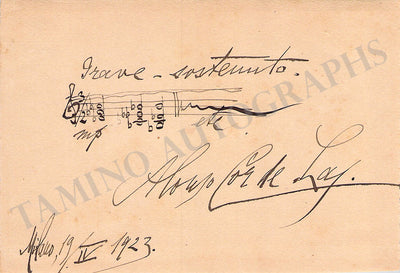 Grave - sostenuto.
mp etc
Alonso Cor de Las.
Milano, 19/IV 1923.
TAMINO AUTOGRAPHS